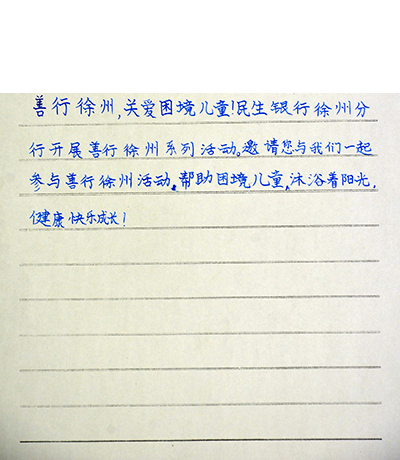 善行徐州,关爱困境儿童!民生银行徐州分
行开展善行徐州系列活动。邀请您与我们一起
参与善行徐州活动,帮助困境儿童,沐浴着阳光,
健康快乐成长!